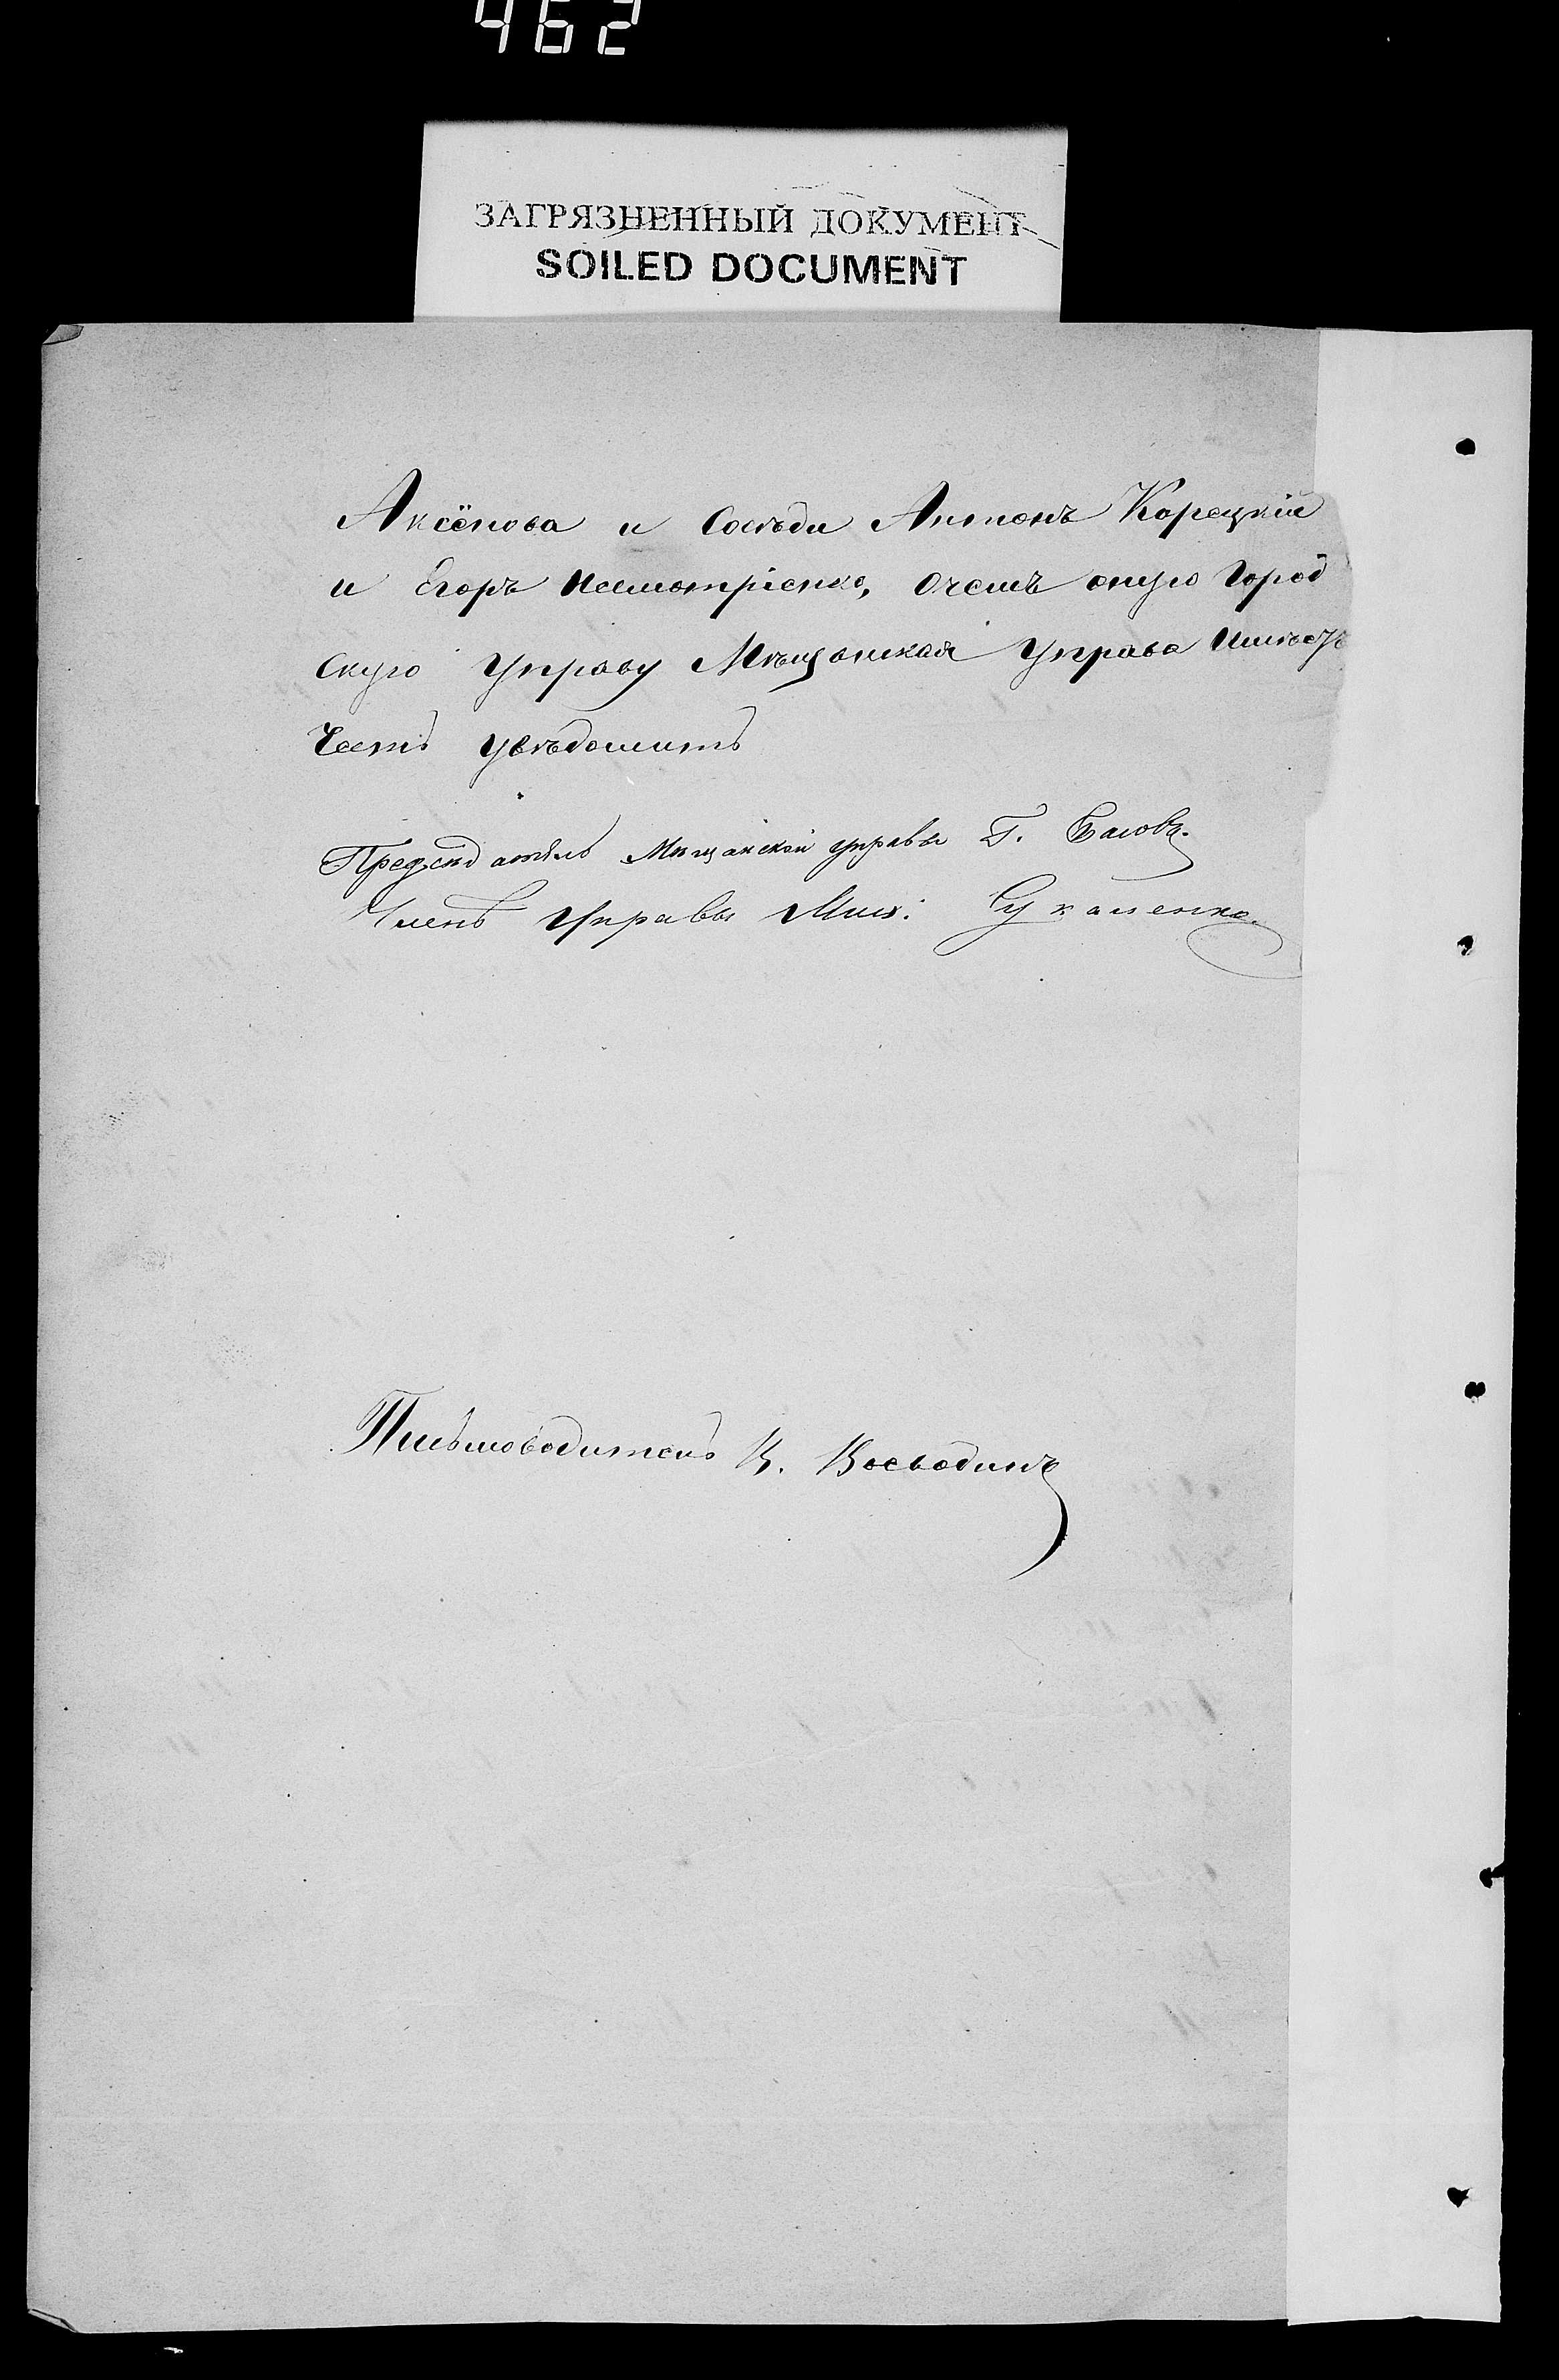 462
ЗАГРЯЗНЕННЫЙ ДОКУМЕНТ
SOILED DOCUMENT
Аксёнова и Сосѣди Антонъ Корецкій
и Егоръ Несмотріенко, Очемъ оную Город
скую Управу Мѣщанская Управа Имѣетъ
Честь увѣдомить
Предсѣдатель Мѣщанской управы Г.
Членъ Управы Мих: Сукаленко
Письмоводитель В. Воеводинъ